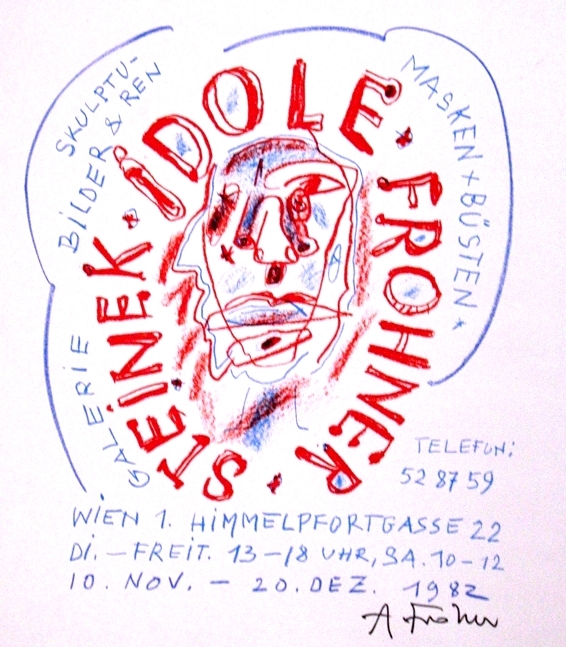 SKULPTU-
BILDER & REN
MASKEN + BÜSTEN *
IDOLE * FROHNER *
GALERIE
STEINEK *
TELEFON:
52 87 59
WIEN 1. HIMMELPFORTGASSE 22
DI. – FREIT. 13–18 UHR, SA. 10–12
10. NOV. – 20. DEZ. 1982
A Frohner